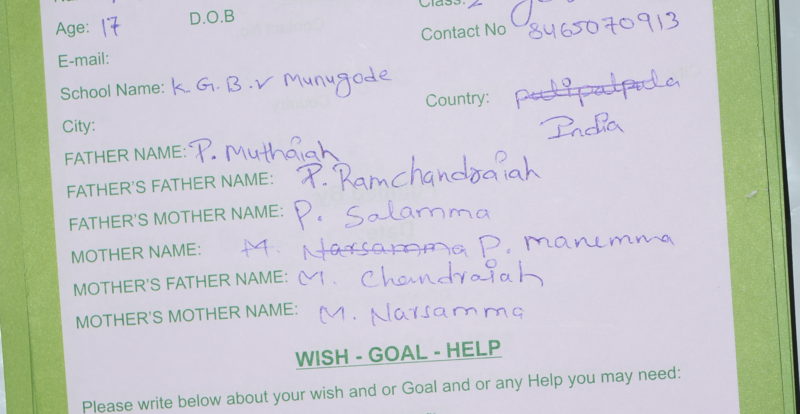 Class: 2
Age: 17 D.O.B
Contact No 8465070913
E-mail:
School Name: K.G.B.V Munugode
Country: India
City:
FATHER NAME: P. Muthaiah
FATHER'S FATHER NAME: P. Ramchandraiah
FATHER'S MOTHER NAME: P. Salamma
MOTHER NAME: M. Narsamma P. manemma
MOTHER'S FATHER NAME: M. Chandraiah
MOTHER'S MOTHER NAME: M. Narsamma
WISH - GOAL - HELP
Please write below about your wish and or Goal and or any Help you may need: